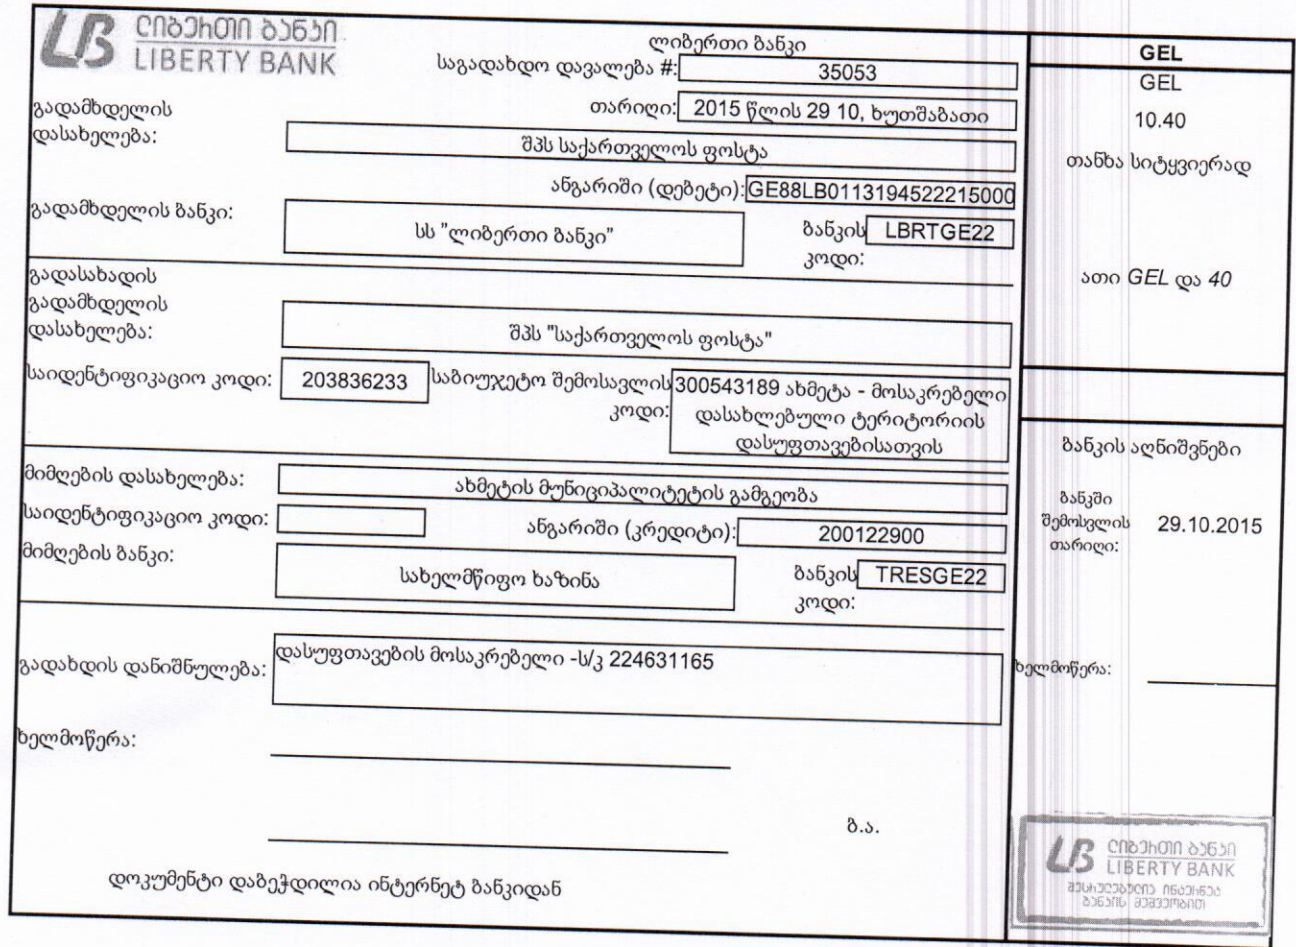 ლიბერთი ბანკი
LIBERTY BANK
ლიბერთი ბანკი
საგადახდო დავალება #: 35053
თარიღი: 2015 წლის 29 10, ხუთშაბათი
გადამხდელის
დასახელება:
შპს საქართველოს ფოსტა
ანგარიში (დებეტი): GE88LB0113194522215000
გადამხდელის ბანკი:
სს "ლიბერთი ბანკი"
ბანკის LBRTGE22
კოდი:
გადასახადის
გადამხდელის
დასახელება:
შპს "საქართველოს ფოსტა"
საიდენტიფიკაციო კოდი: 203836233
საბიუჯეტო შემოსავლის
კოდი:
300543189 ახმეტა - მოსაკრებელი
დასახლებული ტერიტორიის
დასუფთავებისათვის
მიმღების დასახელება:
ახმეტის მუნიციპალიტეტის გამგეობა
საიდენტიფიკაციო კოდი:
ანგარიში (კრედიტი): 200122900
მიმღების ბანკი:
სახელმწიფო ხაზინა
ბანკის TRESGE22
კოდი:
გადახდის დანიშნულება:
დასუფთავების მოსაკრებელი -ს/კ 224631165
ხელმოწერა:
ბ.ა.
დოკუმენტი დაბეჭდილია ინტერნეტ ბანკიდან
GEL
GEL
10.40
თანხა სიტყვიერად
ათი GEL და 40
ბანკის აღნიშვნები
ბანკში
შემოსვლის
თარიღი:
29.10.2015
ხელმოწერა:
ლიბერთი ბანკი
LIBERTY BANK
შესრულებულია ინტერნეტ
ბანკის მეშვეობით